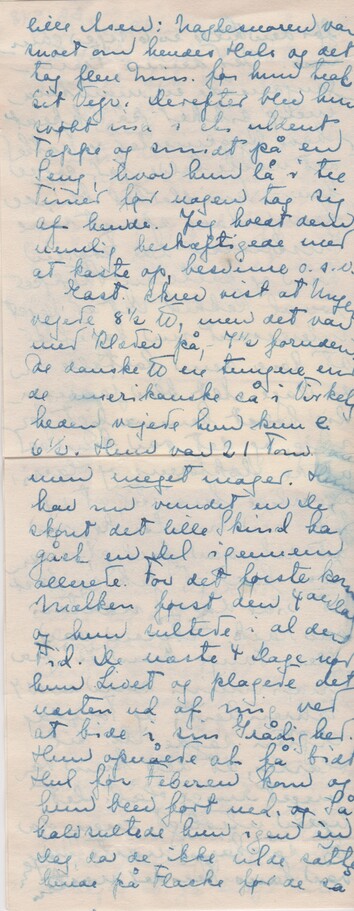 lille Asen; Naglesnoren var
snoet om hendes Hals og det
tog flere Min. før hun traf
sit Vejr. Derefter blev hun
svøbt ind i et uldent
Tæppe og smidt på en
Seng, hvor hun lå i tre
Timer før nogen tog sig
af hende. Jeg holdt dem
nemlig beskæftigede med
at kaste op, besvime o.s.v.
East. skrev vist at Inge
vejede 8½ ℔, men det var
med Klæder på, 7½ foruden.
De danske ℔ er tungere end
de amerikanske så i Virkelig
heden vejede hun kun c.
6½. Hun var 21 Tom.
men meget mager. Hun
har nu vundet en Del
skønt det lille Skind har
gået en Del igennem
allerede. For det første kom
Mælken først den 4de Dag
og hun sultede i al den
Tid. De næste 4 Dage var
hun Livet og plagede det
næsten ud af mig ved
at bide i sin Grådighed.
Hun opnåede at få bidt
Hul før Feberen kom og
hun blev ført ned, og så
halvsultede hun igen én
Dag, da de ikke vilde sætte
hende på Flaske før de så